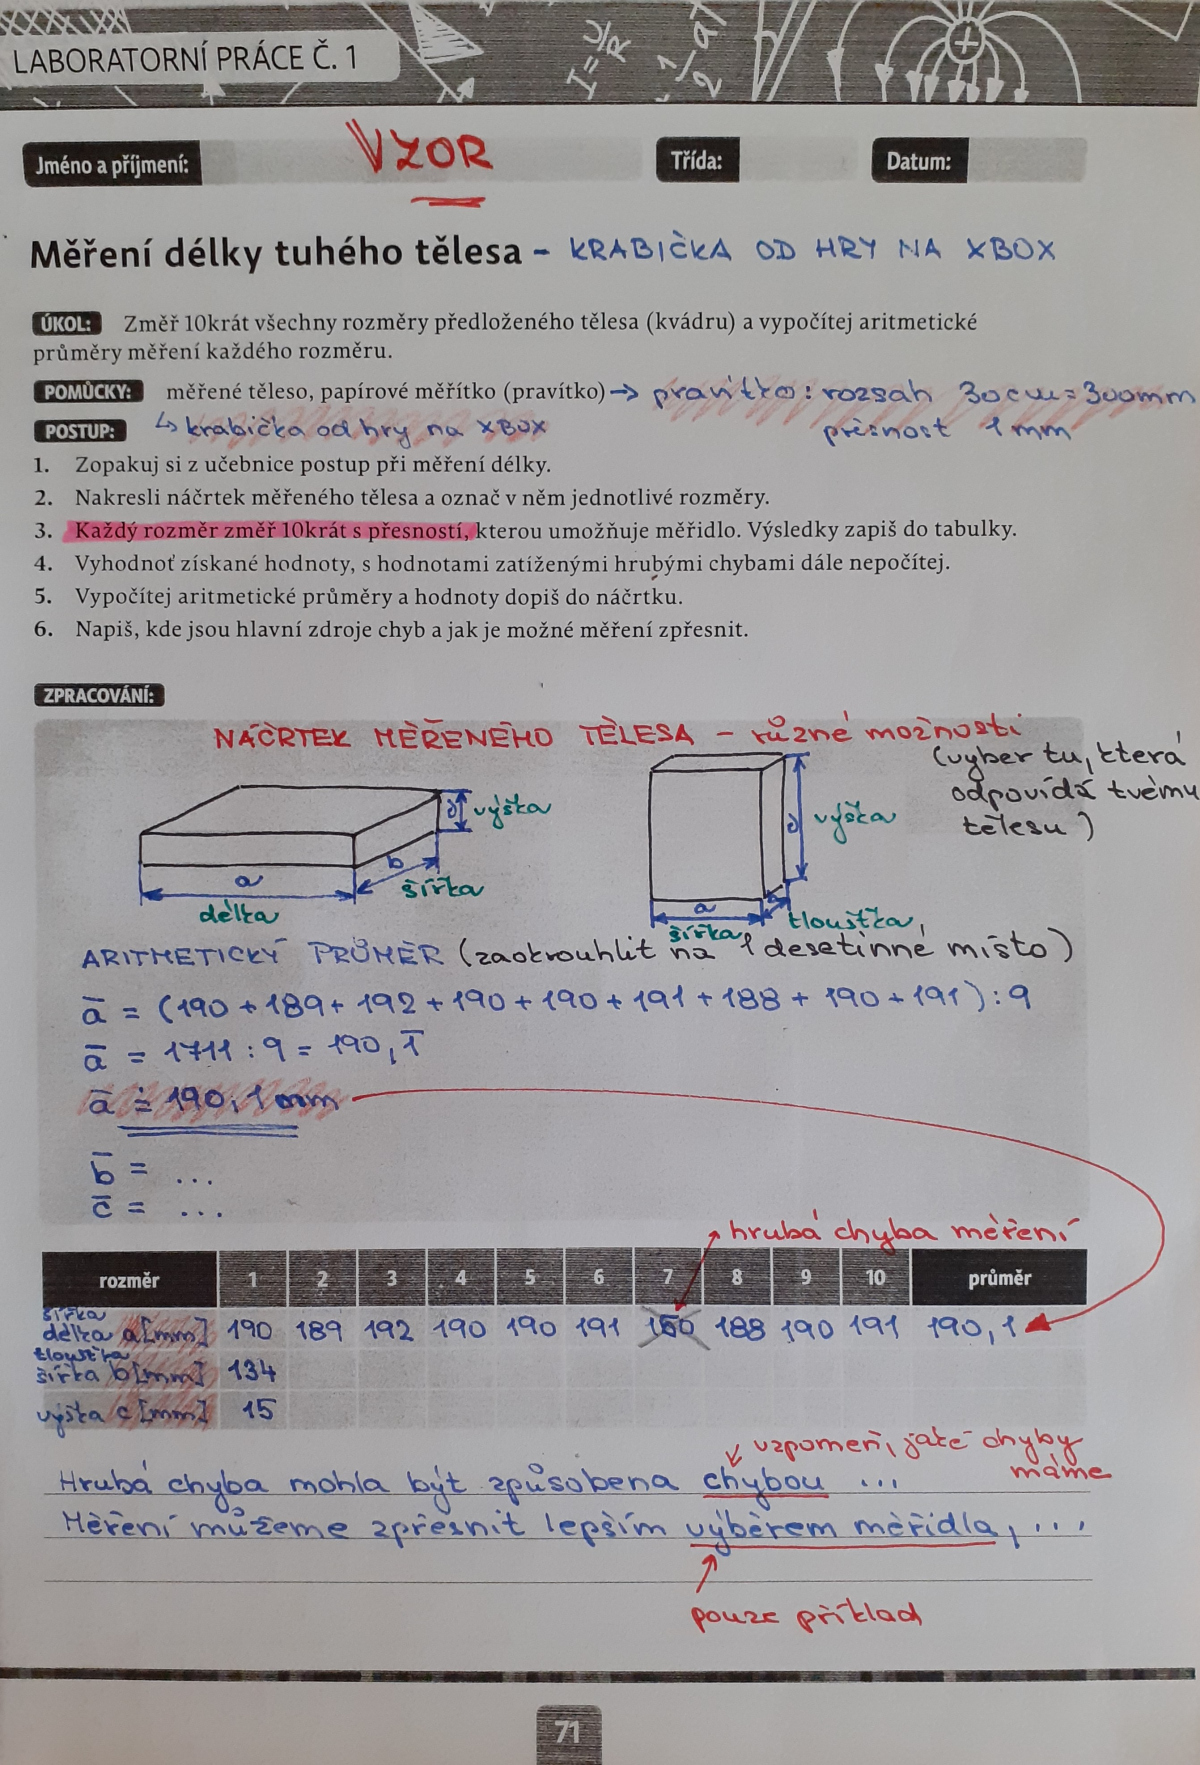 LABORATORNÍ PRÁCE Č. 1
Jméno a příjmení:
VZOR
Třída:
Datum:
Měření délky tuhého tělesa - KRABIČKA OD HRY NA XBOX
ÚKOL: Změř 10krát všechny rozměry předloženého tělesa (kvádru) a vypočítej aritmetické
průměry měření každého rozměru.
POMŮCKY: měřené těleso, papírové měřítko (pravítko) → pravítko: rozsah 30cm=300mm
přesnost 1mm
↳ krabička od hry na XBOX
POSTUP:
1. Zopakuj si z učebnice postup při měření délky.
2. Nakresli náčrtek měřeného tělesa a označ v něm jednotlivé rozměry.
3. Každý rozměr změř 10krát s přesností, kterou umožňuje měřidlo. Výsledky zapiš do tabulky.
4. Vyhodnoť získané hodnoty, s hodnotami zatíženými hrubými chybami dále nepočítej.
5. Vypočítej aritmetické průměry a hodnoty dopiš do náčrtku.
6. Napiš, kde jsou hlavní zdroje chyb a jak je možné měření zpřesnit.
ZPRACOVÁNÍ:
NÁČRTEK MĚŘENÉHO TĚLESA - různé možnosti
(vyber tu, která
odpovídá tvému
tělesu)
c výška
b
šířka
a
délka
c výška
b
tloušťka
a
šířka
ARITMETICKÝ PRŮMĚR (zaokrouhlit na 1 desetinné místo)
a̅ = (190 + 189 + 192 + 190 + 190 + 191 + 188 + 190 + 191) : 9
a̅ = 1711 : 9 = 190,1̅
a̅ ≐ 190,1 mm
b̅ = ...
c̅ = ...
hrubá chyba měření
rozměr 1 2 3 4 5 6 7 8 9 10 průměr
šířka
délka a[mm] 190 189 192 190 190 191 150 188 190 191 190,1
tloušťka
šířka b[mm] 134
výška c[mm] 15
vzpomeň, jaké chyby
máme
Hrubá chyba mohla být způsobena chybou ...
Měření můžeme zpřesnit lepším výběrem měřidla, ...
pouze příklad
71